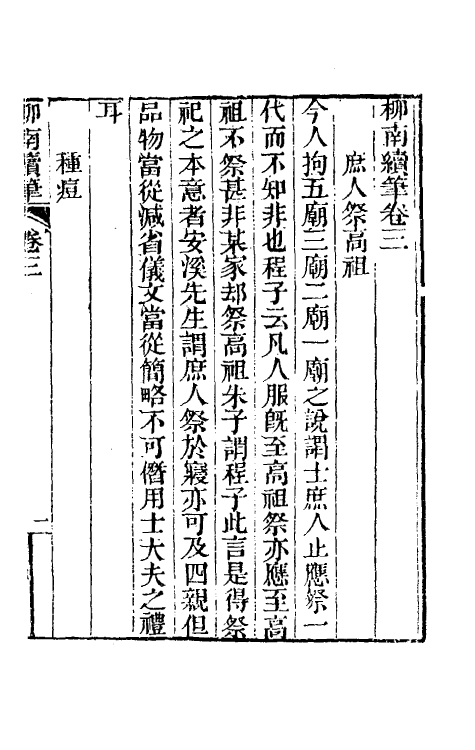 柳南續筆卷三
庶人祭高祖
今人拘五廟三廟二廟一廟之說謂士庶人止應祭一
代而不知非也程子云凡人服旣至高祖祭亦應至高
祖不祭甚非某家却祭高祖朱子謂程子此言是得祭
祀之本意者安溪先生謂庶人祭於寢亦可及四親但
品物當從減省儀文當從簡略不可僭用士大夫之禮
耳
種痘
柳南續筆 卷三 二